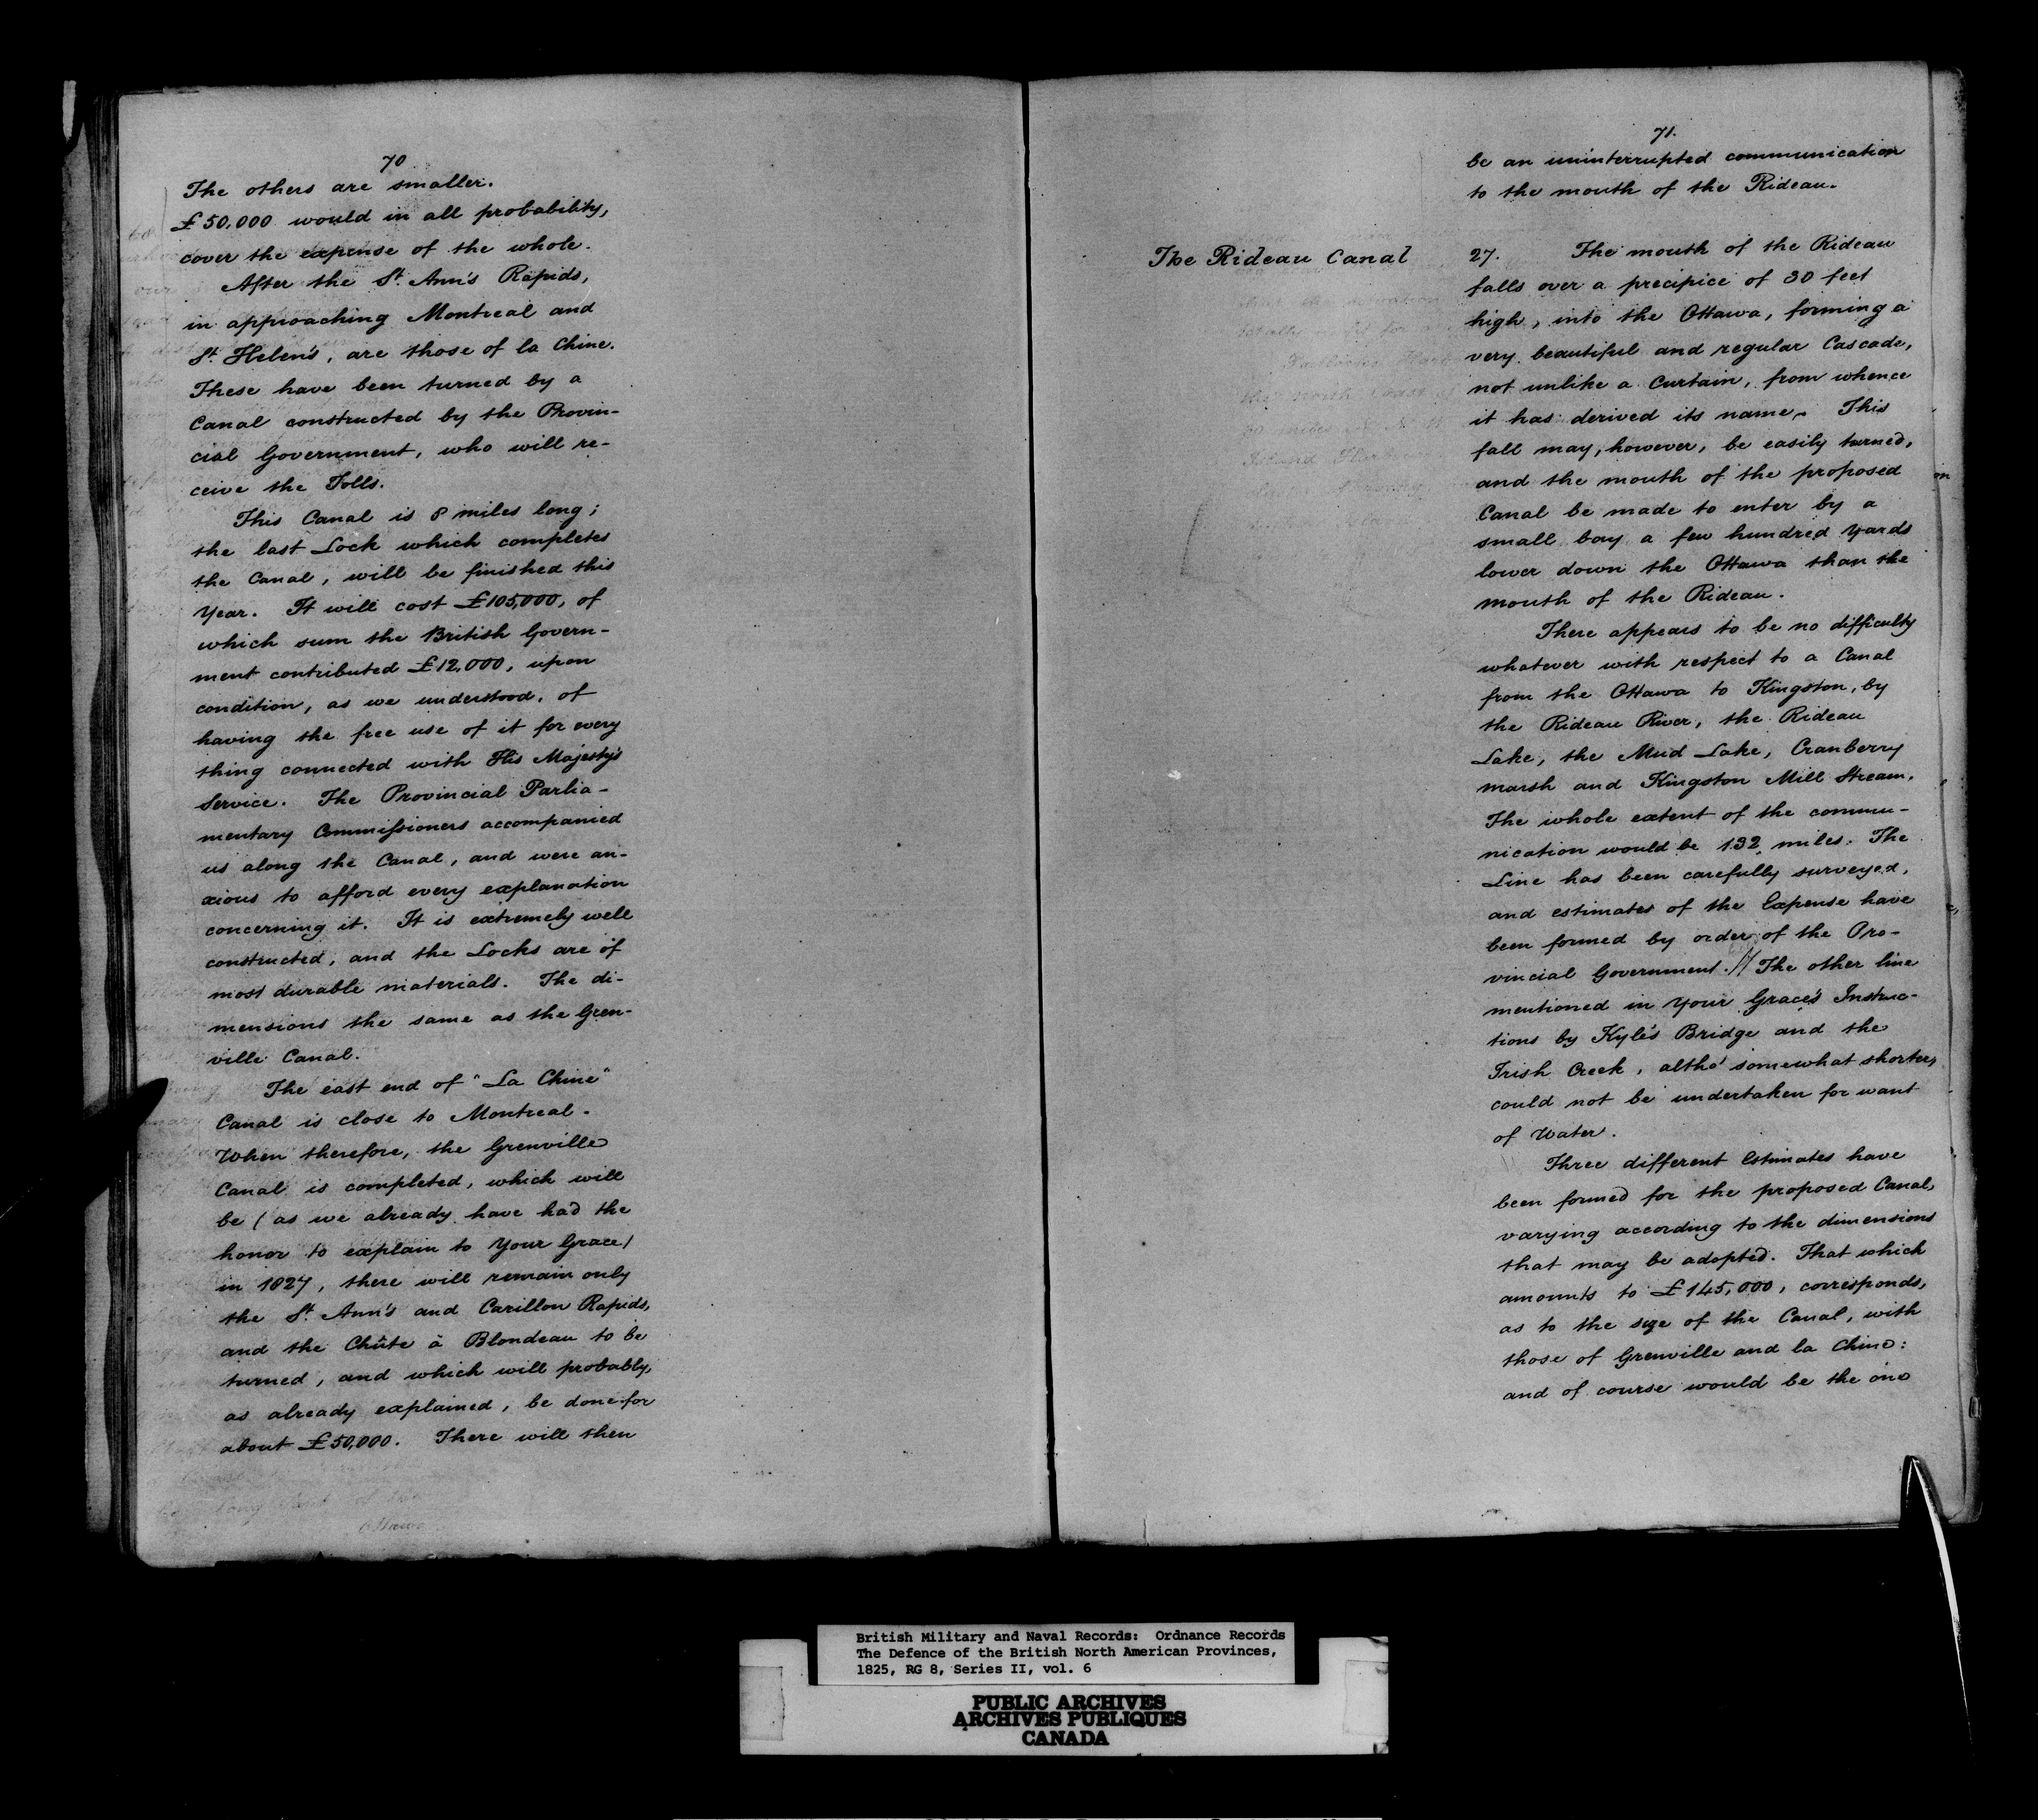 70
The others are smaller.
£50,000 would in all probability,
cover the expense of the whole.
After the St. Ann's Rapids,
in approaching Montreal and
St. Helen's, are those of la Chine.
These have been turned by a
Canal constructed by the Provin-
cial Government, who will re-
ceive the Tolls.
This Canal is 8 miles long;
the last Lock which completes
the Canal, will be finished this
Year. It will cost £105,000, of
which sum the British Govern-
ment contributed £12,000, upon
condition, as we understood, of
having the free use of it for every
thing connected with His Majesty's
Service. The Provincial Parlia-
mentary Commissioners accompanied
us along the Canal, and were an-
xious to afford every explanation
concerning it. It is extremely well
constructed, and the Locks are of
most durable materials. The di-
mensions the same as the Gren-
ville Canal.
The east end of "La Chine"
Canal is close to Montreal.
When therefore, the Grenville
Canal is completed, which will
be (as we already have had the
honor to explain to Your Grace)
in 1827, there will remain only
the St. Ann's and Carillon Rapids,
and the Chûte à Blondeau to be
turned, and which will probably,
as already explained, be done for
about £50,000. There will then
71.
be an uninterrupted communication
to the mouth of the Rideau.
The Rideau Canal
27. The mouth of the Rideau
falls over a precipice of 30 feet
high, into the Ottawa, forming a
very beautiful and regular Cascade,
not unlike a Curtain, from whence
it has derived its name. This
fall may, however, be easily turned,
and the mouth of the proposed
Canal be made to enter by a
small bay a few hundred yards
lower down the Ottawa than the
mouth of the Rideau.
There appears to be no difficulty
whatever with respect to a Canal
from the Ottawa to Kingston, by
the Rideau River, the Rideau
Lake, the Mud Lake, Cranberry
marsh and Kingston Mill Stream.
The whole extent of the commu-
nication would be 132 miles. The
Line has been carefully surveyed,
and estimates of the Expense have
been formed by order of the Pro-
vincial Government. // The other line
mentioned in Your Grace's Instruc-
tions by Kyle's Bridge and the
Irish Creek, altho' somewhat shorter,
could not be undertaken for want
of Water.
Three different Estimates have
been formed for the proposed Canal,
varying according to the dimensions
that may be adopted. That which
amounts to £145,000, corresponds,
as to the size of the Canal, with
those of Grenville and la Chine:
and of course would be the one
British Military and Naval Records: Ordnance Records
The Defence of the British North American Provinces,
1825, RG 8, Series II, vol. 6
PUBLIC ARCHIVES
ARCHIVES PUBLIQUES
CANADA